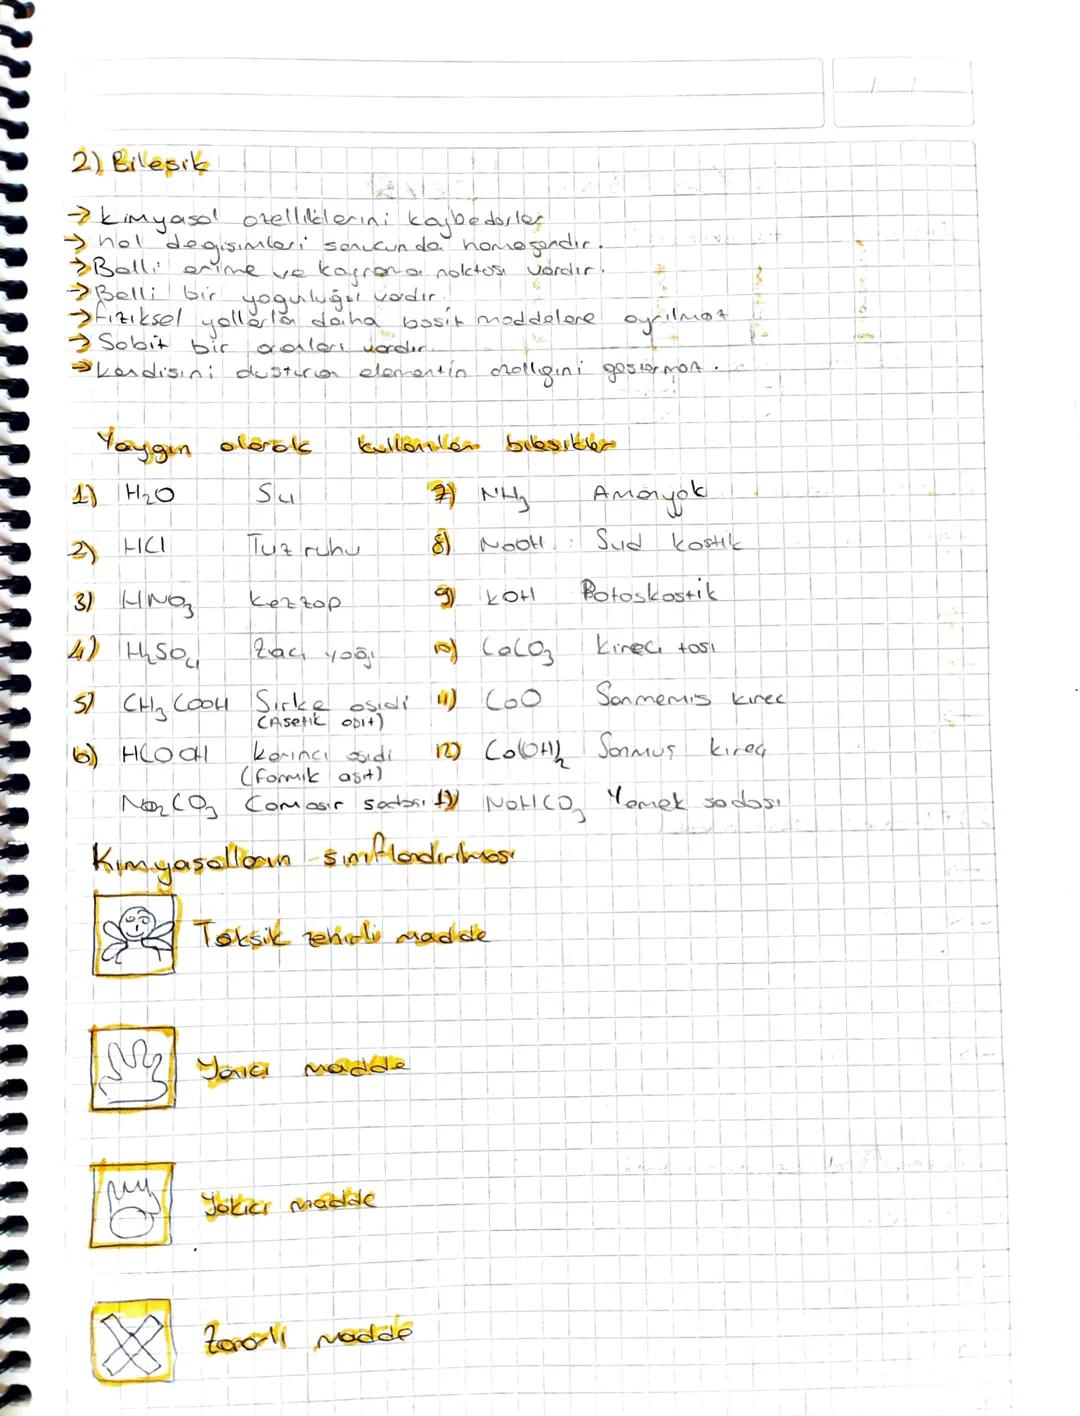 2) Bileşik
→ Kimyasal özelliklerini kaybederler
→ hal değişimleri sonucunda homojendir.
→ Belli erime ve kaynama noktası vardır.
→ Belli bir yoğunluğu vardır.
→ Fiziksel yollarla daha basit maddelere ayrılmaz
→ Sabit bir oranları vardır.
→ Kendisini elementin özelliğini göstermez.
Yaygın olarak kullanılan bileşikler
1) H₂O Su 7) NH₃ Amonyak
2) HCl Tuz ruhu 8) NaOH : Sud kostik
3) HNO₃ Kezzap 9) KOH Potaskostik
4) H₂SO₄ Zaç yağı 10) CaCO₃ Kireç taşı
5) CH₃COOH Sirke asidi 11) CaO Sönmemiş kireç
(Asetik asit)
6) HCOOH Karınca asidi 12) Ca(OH)₂ Sönmüş kireç
(formik asit)
Na₂CO₃ Çamaşır sodası NaHCO₃ Yemek sodası
Kimyasalların sınıflandırılması
Toksik zehirli madde
Yanıcı madde
Yakıcı madde
Zararlı madde